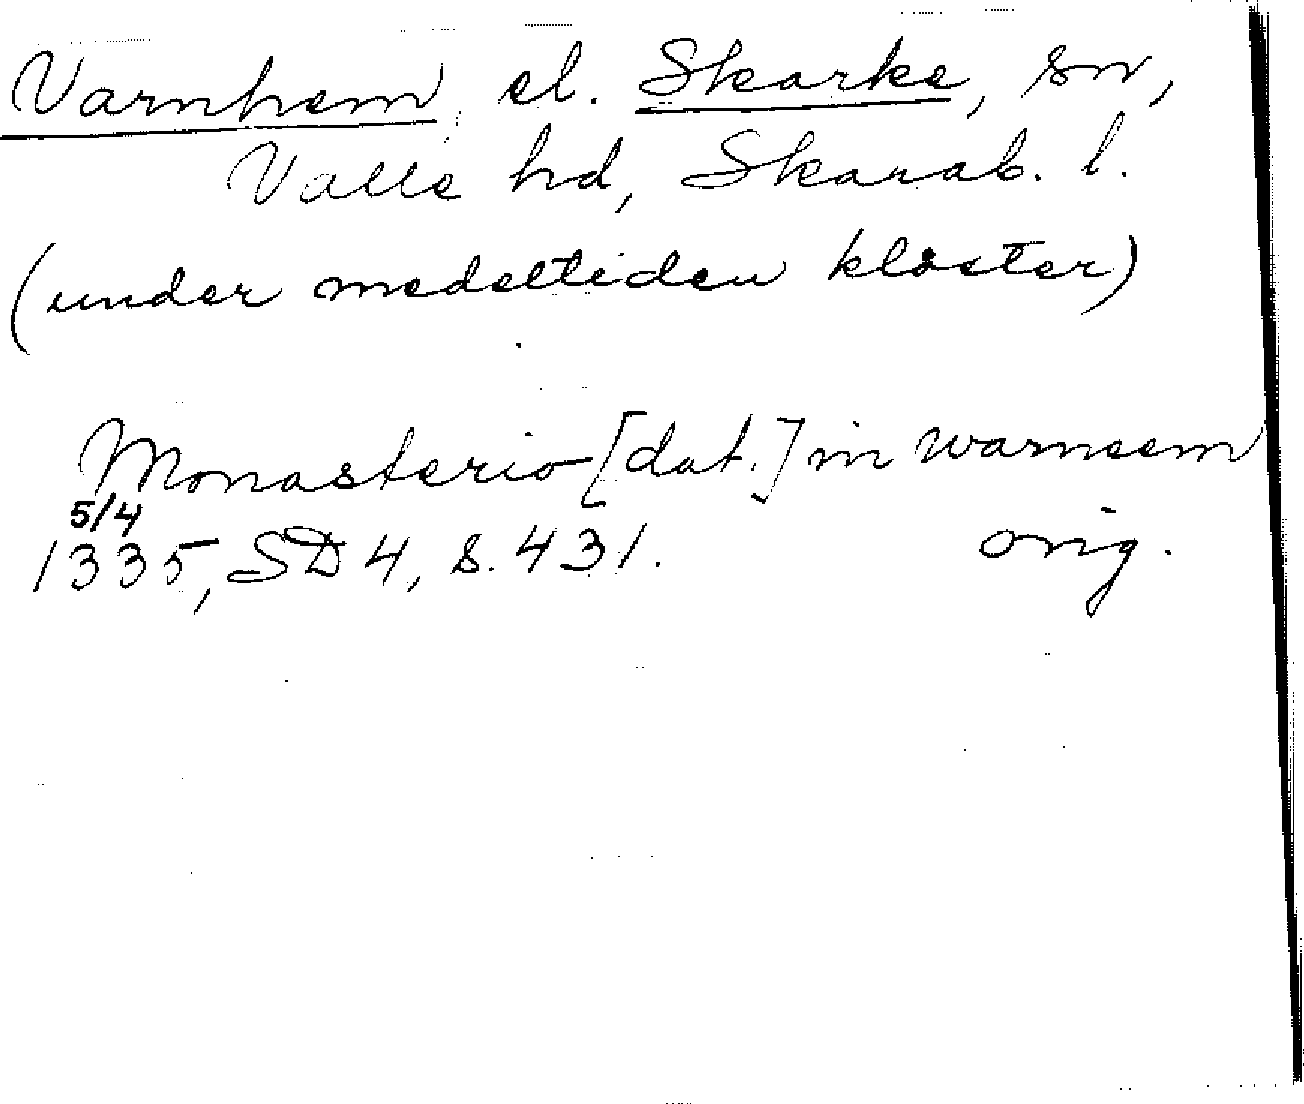 Varnhem, el. Skarke, sn,
Valle hd, Skarab. l.
(under medeltiden kloster)
Monasterio [dat.] in warneem
5/4
1335, SD 4, s. 431. orig.